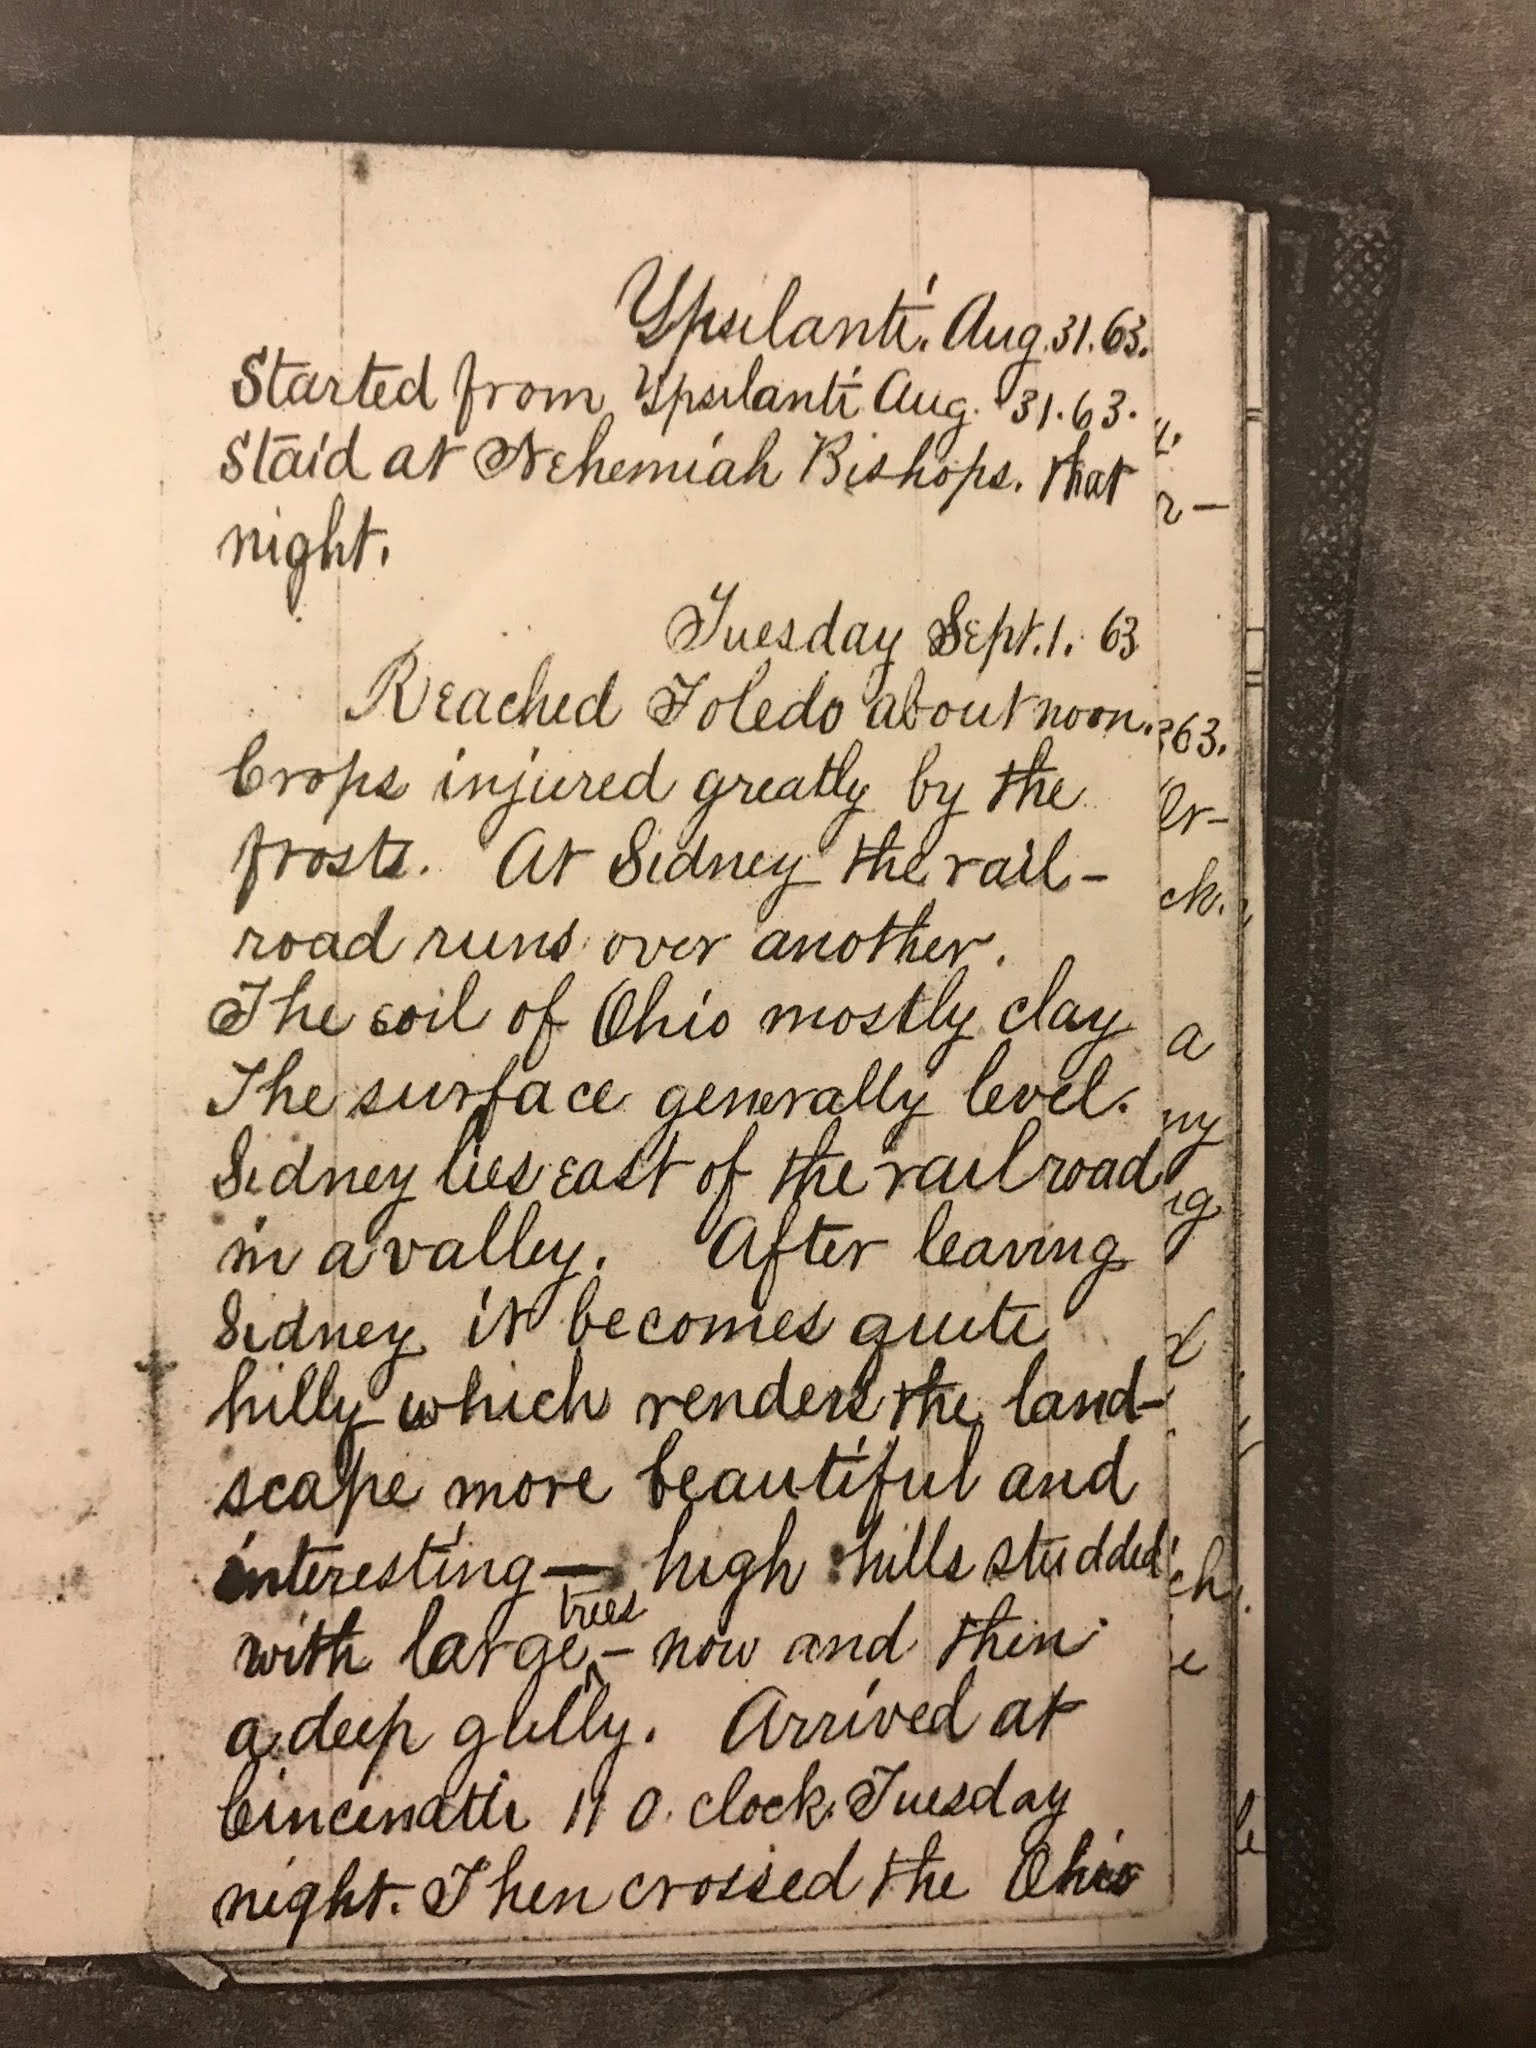 Ypsilanti. Aug. 31. 63.
Started from Ypsilanti Aug. 31. 63.
Staid at Nehemiah Bishops. that
night.
Tuesday Sept. 1. 63
Reached Toledo about noon.
Crops injured greatly by the
frosts. At Sidney the rail-
road runs over another.
The soil of Ohio mostly clay
The surface generally level.
Sidney lies east of the railroad
in a valley. After leaving
Sidney it becomes quite
hilly which renders the land-
scape more beautiful and
interesting — high hills studded
trees
with large ^ - now and then
a deep gully. Arrived at
Cincinatti 11 O. clock. Tuesday
night. Then crossed the Ohio
63.
ck.
a
ny